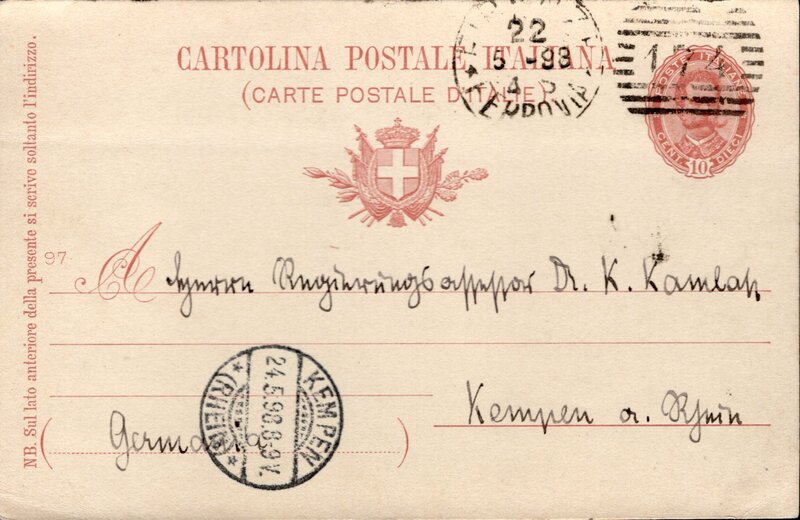 22
5-98
4 S
174
CARTOLINA POSTALE ITALIANA
(CARTE POSTALE D'ITALIE)
POSTE ITALIANE
CENT. 10 DIECI
NB. Sul lato anteriore della presente si scrive soltanto l'indirizzo.
97
A Herrn Regierungsassessor Dr. K. Kamlah
Kempen a. Rhein
(Germania)
KEMPEN
24.5.98.8-9V.
*(RHEIN)*